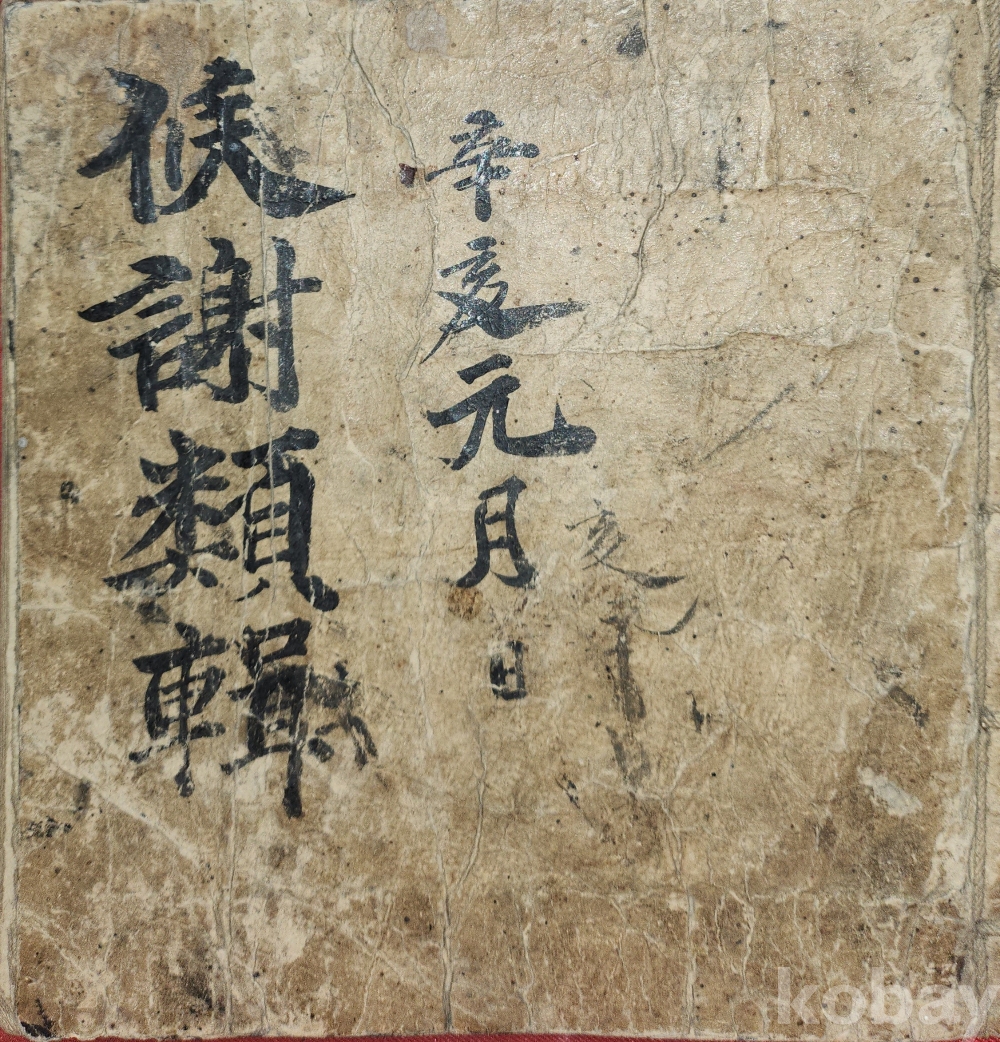 辛亥元月日
候謝類輯
亥
kobay